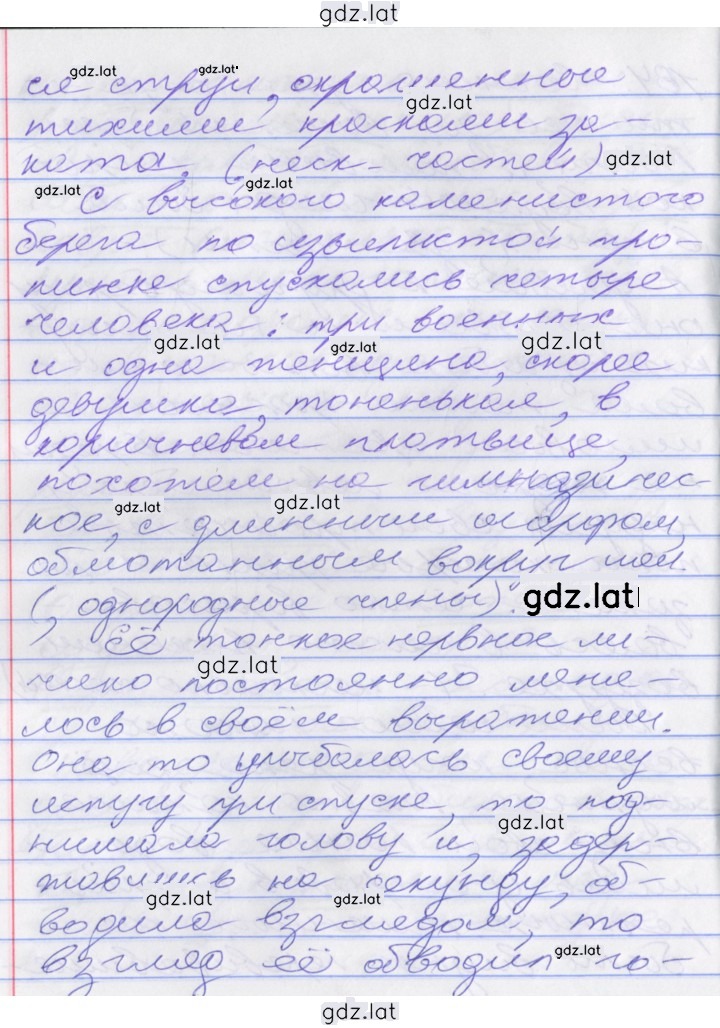 gdz.lat
gdz.lat gdz.lat
ся струи, окрашенные
gdz.lat
тихими красками за-
ката. (неск. частей) gdz.lat
gdz.lat gdz.lat
С высокого каменистого
берега по извилистой тро-
пинке спускались четыре
человека: три военных
gdz.lat gdz.lat gdz.lat
и одна женщина, скорее
девушка, тоненькая, в
коричневом платьице,
похожем на гимназичес-
gdz.lat gdz.lat
кое, с длинным шарфом,
обмотанным вокруг шеи.
(, однородные члены). gdz.lat
Её тонкое нервное ли-
gdz.lat
чико постоянно меня-
лось в своём выражении.
Она то улыбалась своему
испугу при спуске, то под-
gdz.lat
нимала голову и, задер-
жавшись на секунду, об-
gdz.lat gdz.lat
водила взглядом, то
gdz.lat
взгляд её обводил го-
gdz.lat